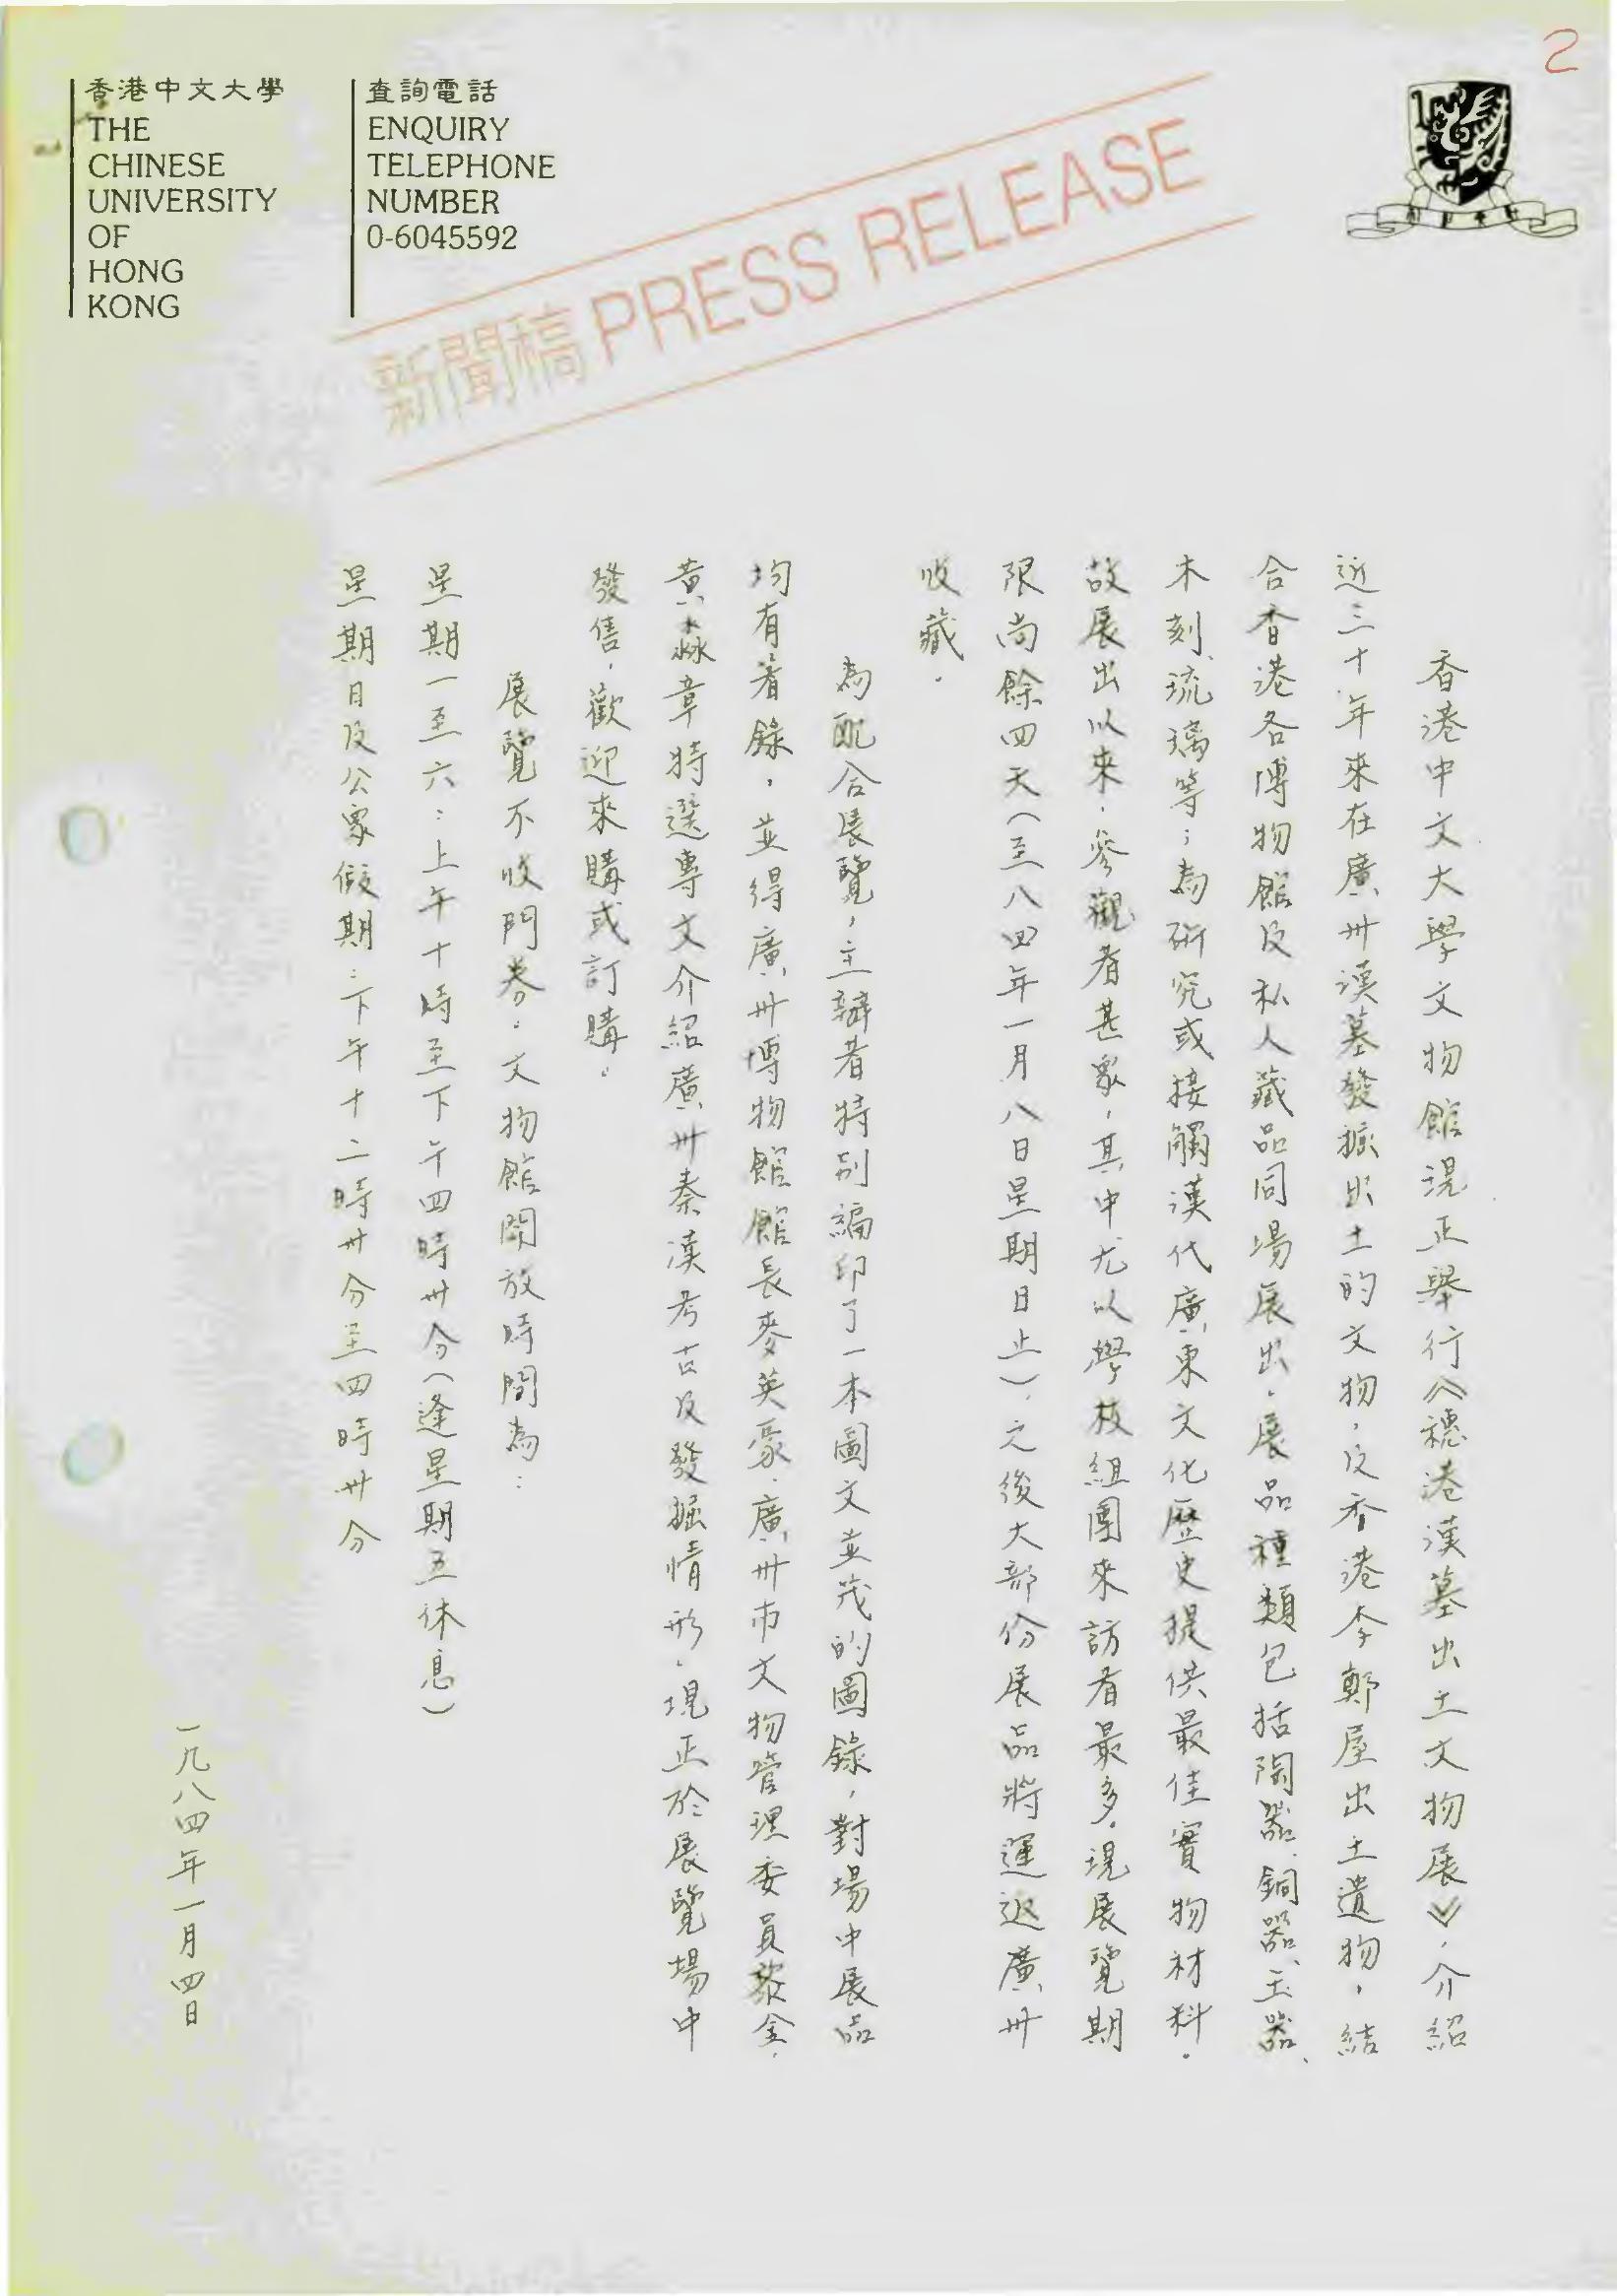 2
香港中文大學
THE
CHINESE
UNIVERSITY
OF
HONG
KONG
查詢電話
ENQUIRY
TELEPHONE
NUMBER
0-6045592
新聞稿 PRESS RELEASE
香港中文大學文物館現正舉行《穗港漢墓出土文物展》，介紹
近三十年來在廣州漢墓發掘出土的文物，及香港李鄭屋出土遺物，結
合香港各博物館及私人藏品同場展出。展品種類包括陶器、銅器、玉器、
木刻、琉璃等；為研究或接觸漢代廣東文化歷史提供最佳實物材料。
故展出以來，參觀者甚眾，其中尤以學校組團來訪者最多。現展覽期
限尚餘四天（至八四年一月八日星期日止），之後大部份展品將運返廣州
收藏。
為配合展覽，主辦者特別編印了一本圖文並茂的圖錄，對場中展品
均有著錄，並得廣州博物館館長麥英豪、廣州市文物管理委員黎金、
黃淼章特選專文介紹廣州秦漢考古及發掘情形，現正於展覽場中
發售，歡迎來購或訂購。
展覽不收門券。文物館開放時間為：
星期一至六：上午十時至下午四時卅分（逢星期五休息）
星期日及公眾假期：下午十二時卅分至四時卅分
一九八四年一月四日